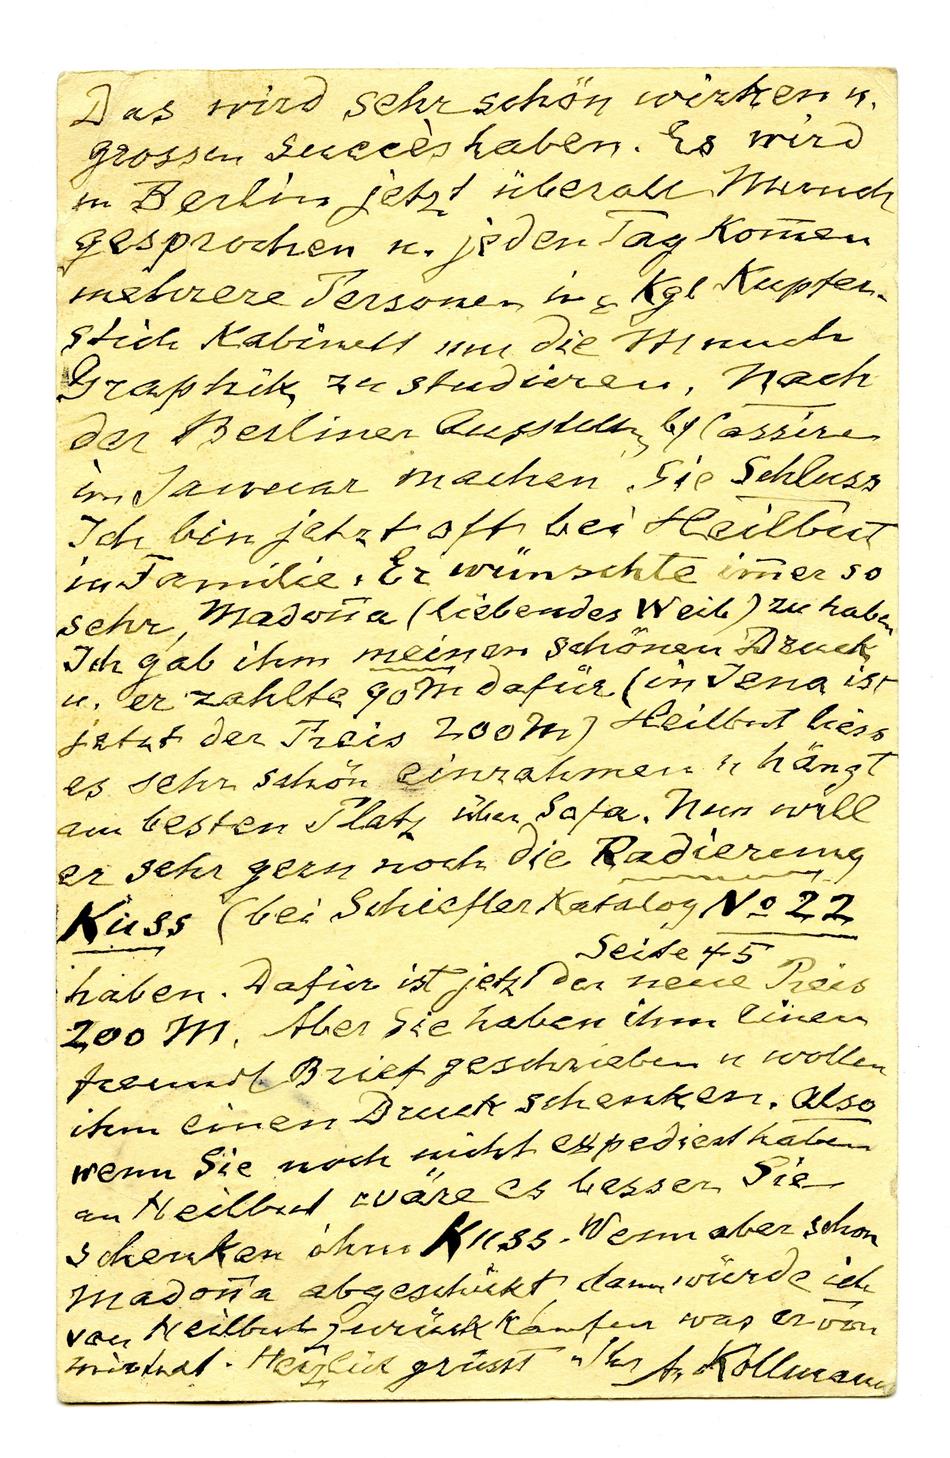 Das wird sehr schön wirken u.
grossen Succès haben. Es wird
in Berlin jetzt überall Munch
gesprochen u. jeden Tag kom̄en
mehrere Personen in Kgl Kupfer-
stich Kabinett um die Munch
Graphik zu studieren. Nach
der Berliner Ausstellung bei Cassirer
im Januar machen Sie Schluss
Ich bin jetzt oft bei Heilbut
in Familie. Er wünschte im̄er so
sehr, Madon̄a (liebendes Weib) zu haben
Ich gab ihm meinen schönen Druck
u. er zahlte 90 M dafür (in Jena ist
jetzt der Preis 200 M) Heilbut liess
es sehr schön einrahmen u hängt
am besten Platz über Sofa. Nun will
er sehr gern noch die Radierung
Kuss (bei Schiefler Katalog No 22
Seite 45
haben. Dafür ist jetzt der neue Preis
200 M. Aber Sie haben ihm einen
freundl Brief geschrieben u wollen
ihm einen Druck schenken. also
wenn Sie noch nicht expediert haben
an Heilbut wäre es besser Sie
schenken ihm Kuss. Wenn aber schon
Madon̄a abgeschickt, dann würde ich
von Heilbut zurück kaufen was er von
mir hat. Herzlich grüsst Ihr A. Kollmann